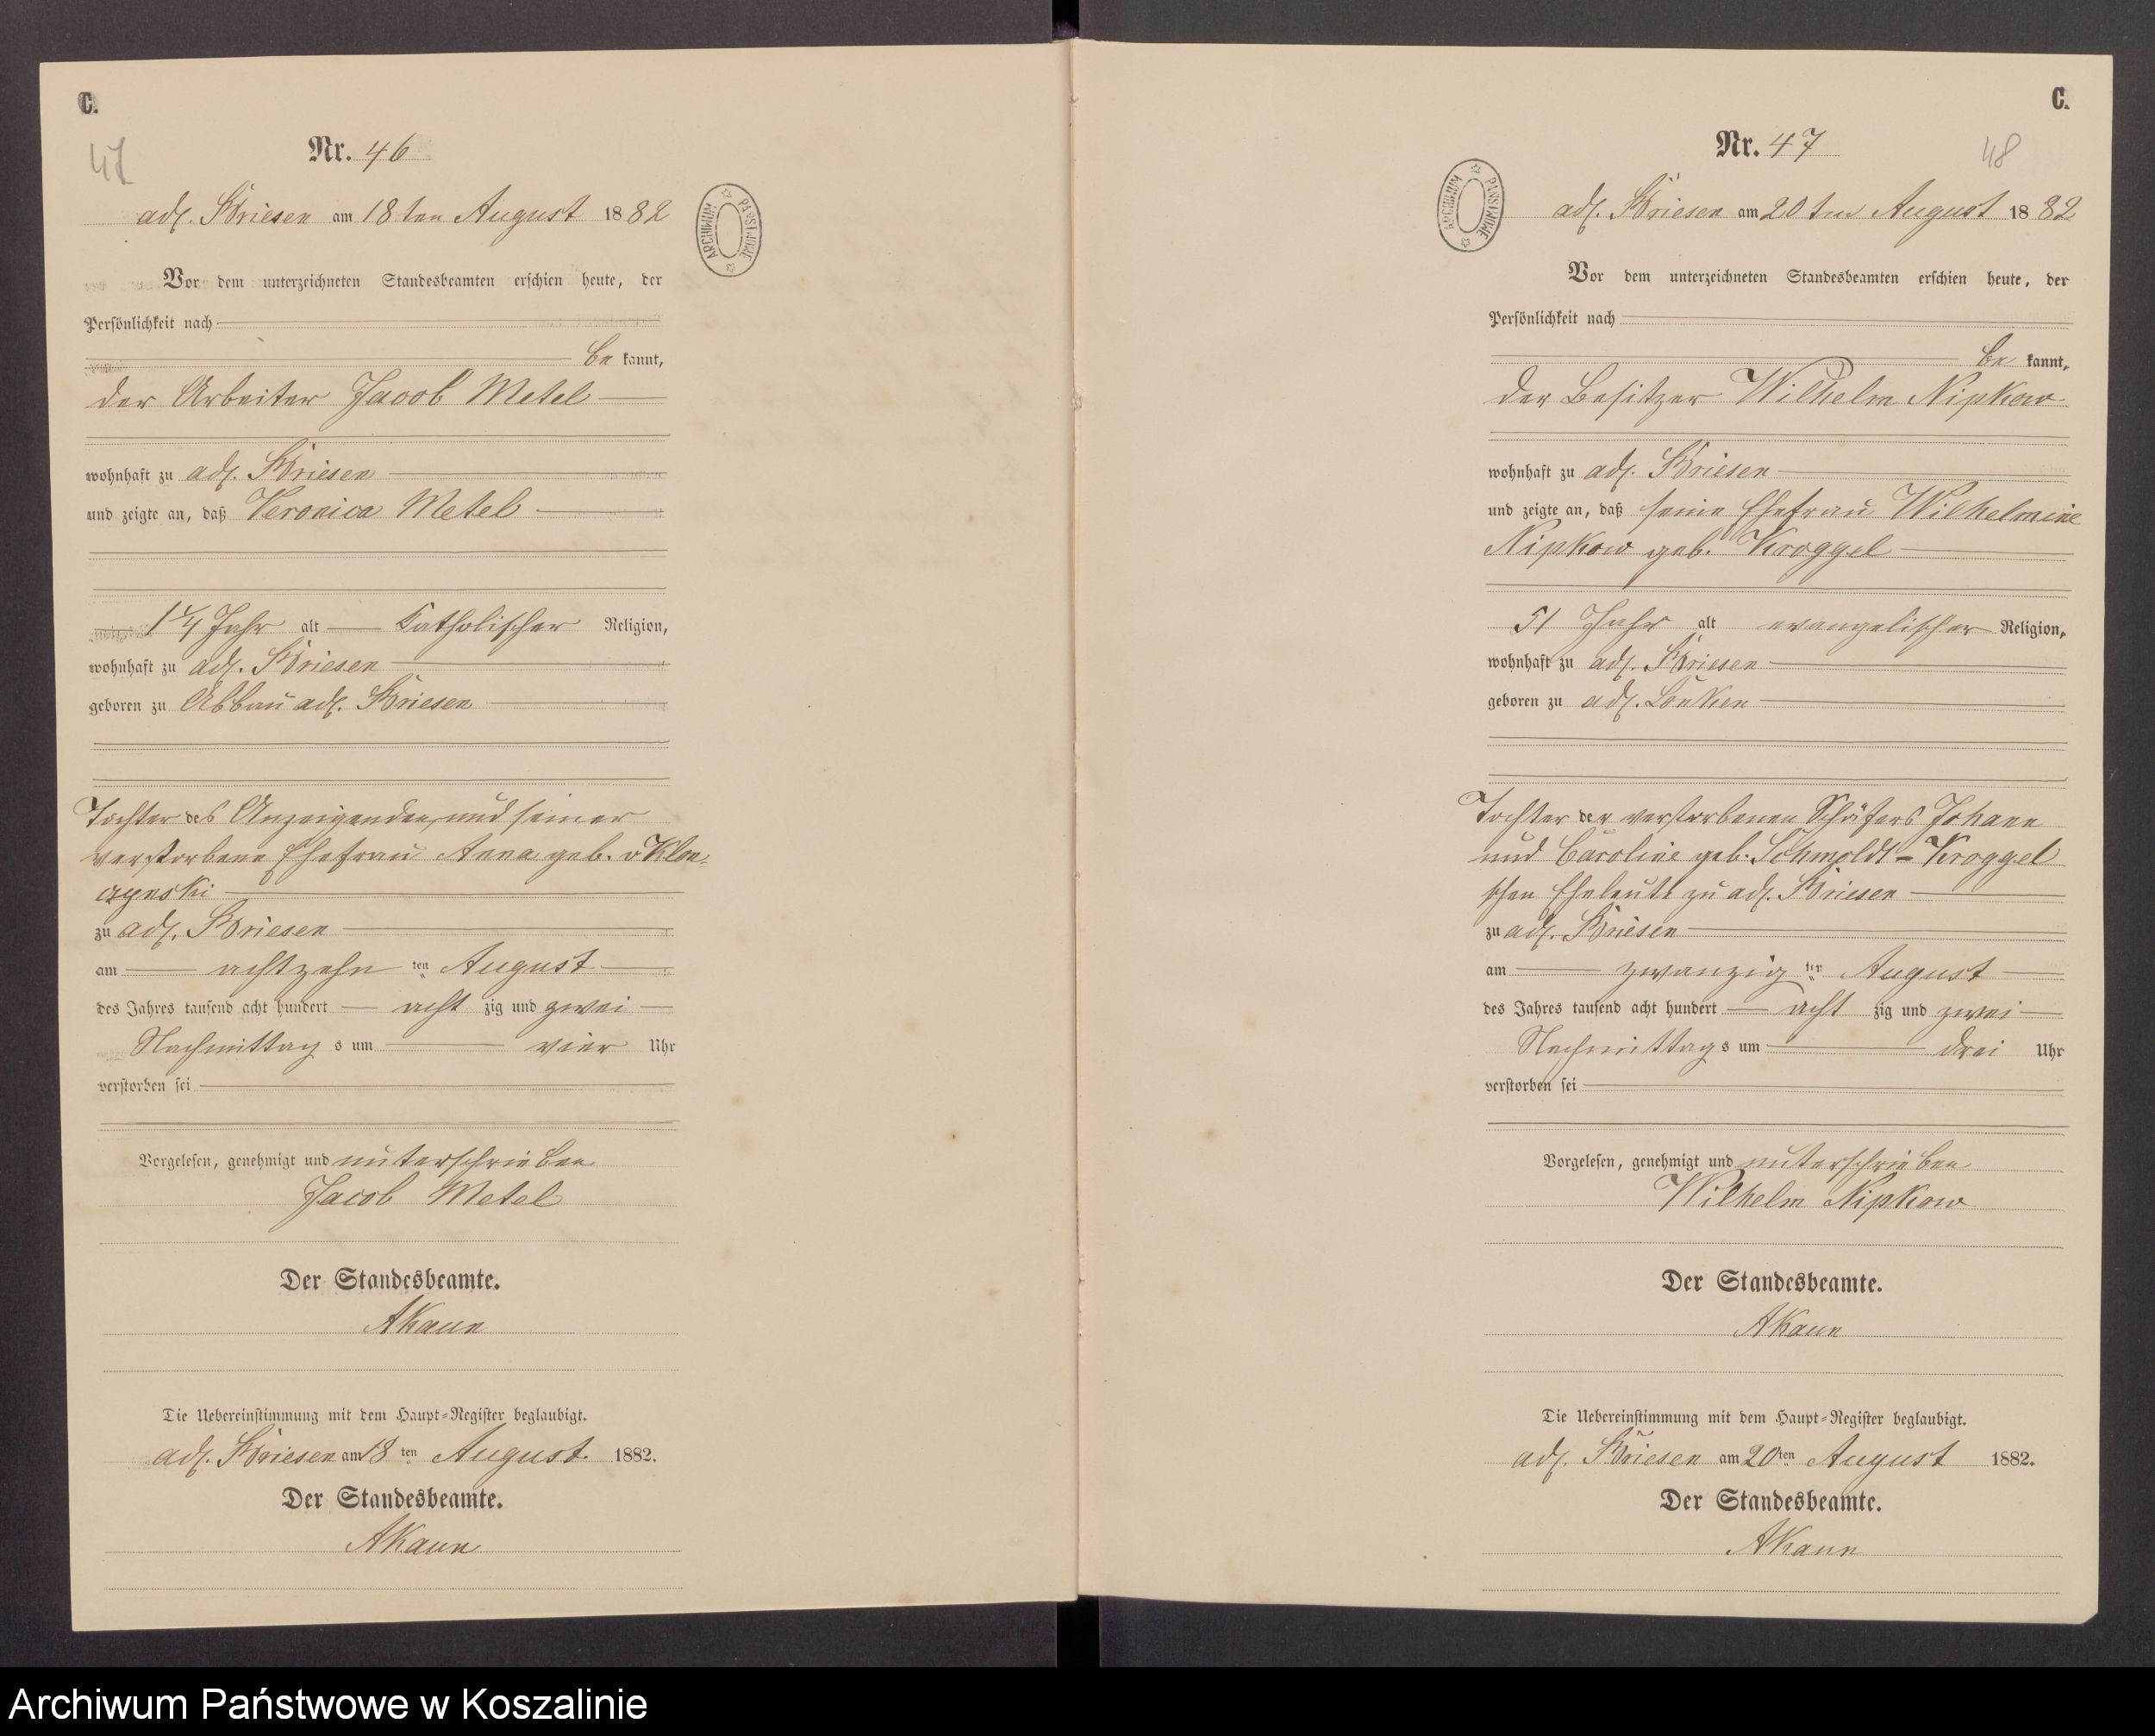 C.
47
Nr. 46
adl. Briesen am 18 ten August 1882
Vor dem unterzeichneten Standesbeamten erschien heute, der
Persönlichkeit nach
be kannt,
der Arbeiter Jacob Metel
wohnhaft zu adl. Briesen
und zeigte an, daß Veronica Metel
1 1/4 Jahr alt Katholischer Religion,
wohnhaft zu adl. Briesen
geboren zu Abbau adl. Briesen
Tochter des Anzeigenden, und seiner
verstorbene Ehefrau Anna geb. v Klon-
czynski
zu adl. Briesen
am achtzehn ten August
des Jahres tausend acht hundert acht zig und zwei
Nachmittag s um vier Uhr
verstorben sei
Vorgelesen, genehmigt und unterschrieben
Jacob Metel
Der Standesbeamte.
AKaun
Die Uebereinstimmung mit dem Haupt-Register beglaubigt.
adl. Briesen am 18 ten August 1882.
Der Standesbeamte.
AKaun
ARCHIWUM PAŃSTWOWE
C.
48
Nr. 47
adl. Briesen am 20 ten August 1882
Vor dem unterzeichneten Standesbeamten erschien heute, der
Persönlichkeit nach
be kannt,
der Besitzer Wilhelm Nipkow
wohnhaft zu adl. Briesen
und zeigte an, daß seine Ehefrau Wilhelmine
Nipkow geb. Kroggel
51 Jahr alt evangelischer Religion,
wohnhaft zu adl. Briesen
geboren zu adl. Lonken
Tochter der verstorbenen Schäfers Johann
und Caroline geb. Schmoldt - Kroggel
schen Eheleute zu adl. Briesen
zu adl. Briesen
am zwanzig ten August
des Jahres tausend acht hundert acht zig und zwei
Nachmittag s um drei Uhr
verstorben sei
Vorgelesen, genehmigt und unterschrieben
Wilhelm Nipkow
Der Standesbeamte.
AKaun
Die Uebereinstimmung mit dem Haupt-Register beglaubigt.
adl. Briesen am 20 ten August 1882.
Der Standesbeamte.
AKaun
ARCHIWUM PAŃSTWOWE
Archiwum Państwowe w Koszalinie